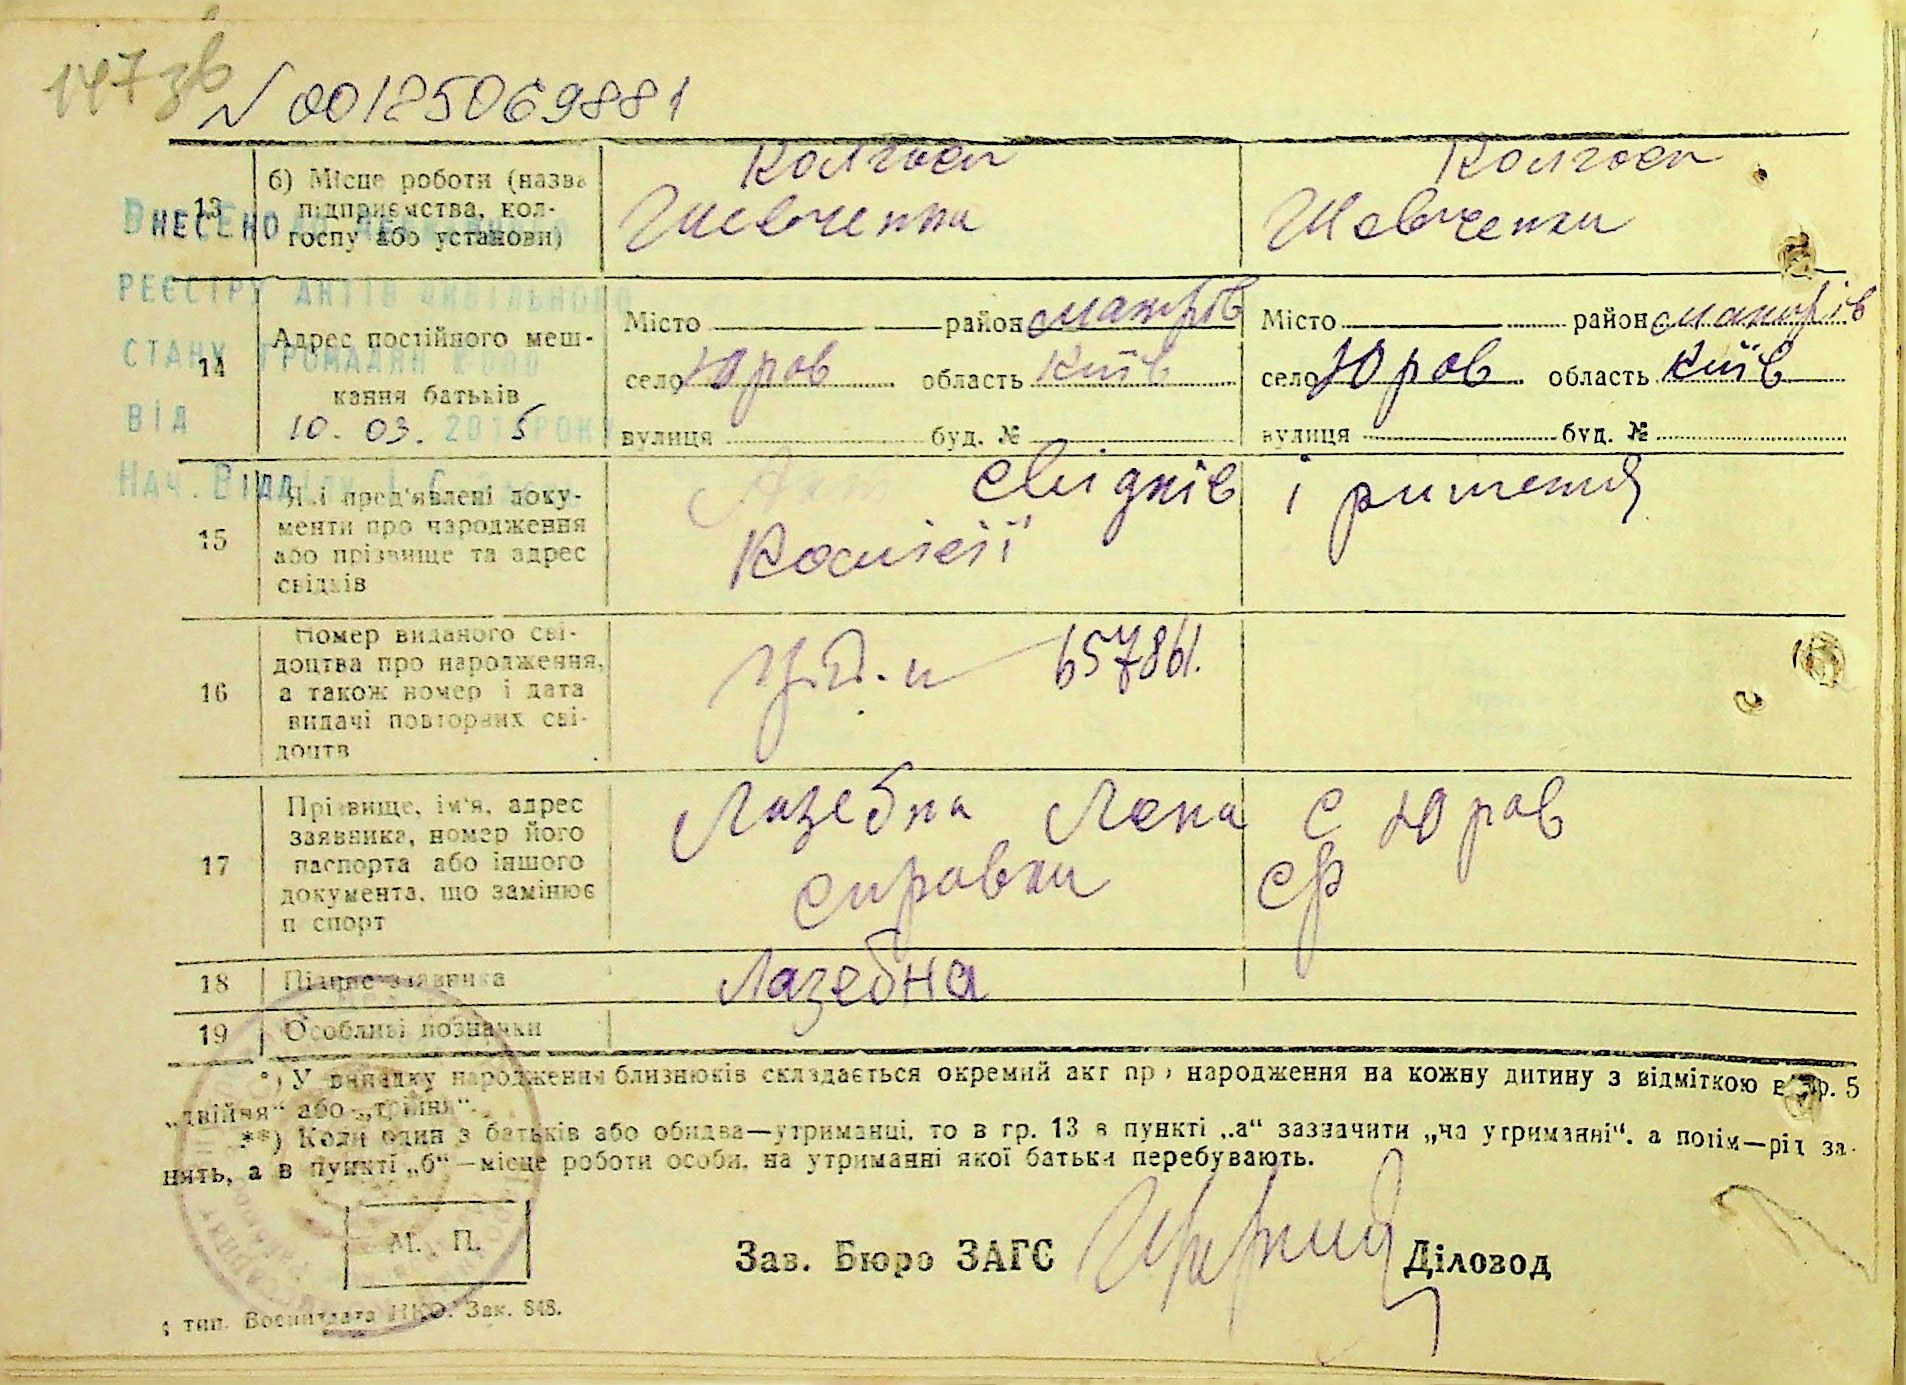 147 зв
N 00125069881
13
б) Місце роботи (назва підприємства, колгоспу або установи)
Колгосп Шевченка
Колгосп Шевченка
Внесено до Державного
реєстру актів цивільного
стану громадян
від 10.03.2015 року
Нач. Відділу
14
Адрес постійного мешкання батьків
Місто район макарів
село Юров область Київ
вулиця буд. №
Місто район макарів
село Юров область Київ
вулиця буд. №
15
Які пред'явлені документи про народження або прізвище та адрес свідків
Акт свідків і ришення
Комісії
16
Номер виданого свідоцтва про народження, а також номер і дата видачі повторних свідоцтв
657861.
17
Прізвище, ім'я, адрес заявника, номер його паспорта або іншого документа, що замінює паспорт
Лазебна Лена с Юров
справка ср
18
Підпис заявника
Лазебна
19
Особливі позначки
*) У випадку народження близнюків складається окремий акт про народження на кожну дитину з відміткою в гр. 5
„двійня“ або „трійня“.
**) Коли один з батьків або обидва—утриманці, то в гр. 13 в пункті „а“ зазначити „на утриманні“, а потім—рід за-
нять, а в пункті „б“—місце роботи особи, на утриманні якої батьки перебувають.
М. П.
Зав. Бюро ЗАГС
Діловод
тип. Воениздата НКО. Зак. 848.